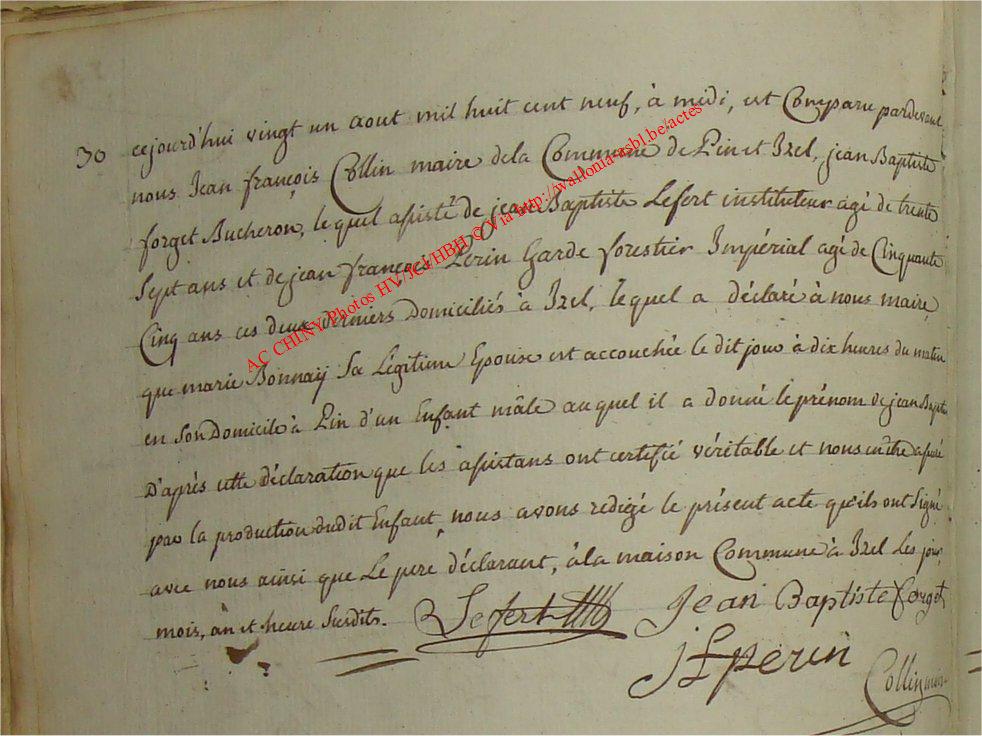 30
cejourd'hui vingt un aout mil huit cent neuf, à midi, est Comparu pardevant
nous Jean françois Collin maire dela Commune de Pin et Izel, jean Baptiste
forget Bucheron, le quel assisté de jean Baptiste Lefert instituteur agé de trente
Sept ans et de jean françois Perin Garde forestier Impérial agé de Cinquante
Cinq ans ces deux derniers Domiciliés à Izel, lequel a déclaré à nous maire
que marie Bonnaÿ Sa Légitime Epouse est accouchée le dit jour à dix heures du matin
en Son Domicile à Pin d'un Enfant mâle auquel il a donné le prénom de jean Baptiste
D'après cette déclaration que les assistans ont certifié véritable et nous être assuré
par la production dudit Enfant, nous avons redigé le présent acte qu'ils ont Signé
avec nous ainsi que Le pere déclarant, à la maison Commune à Izel Les jour
mois, an et heure Susdits.
Lefert
Jean Baptiste forget
jf perin
Collin maire
AC CHINY Photos HV/JCI/HBH © Via http://wallonia-asbl.be/actes